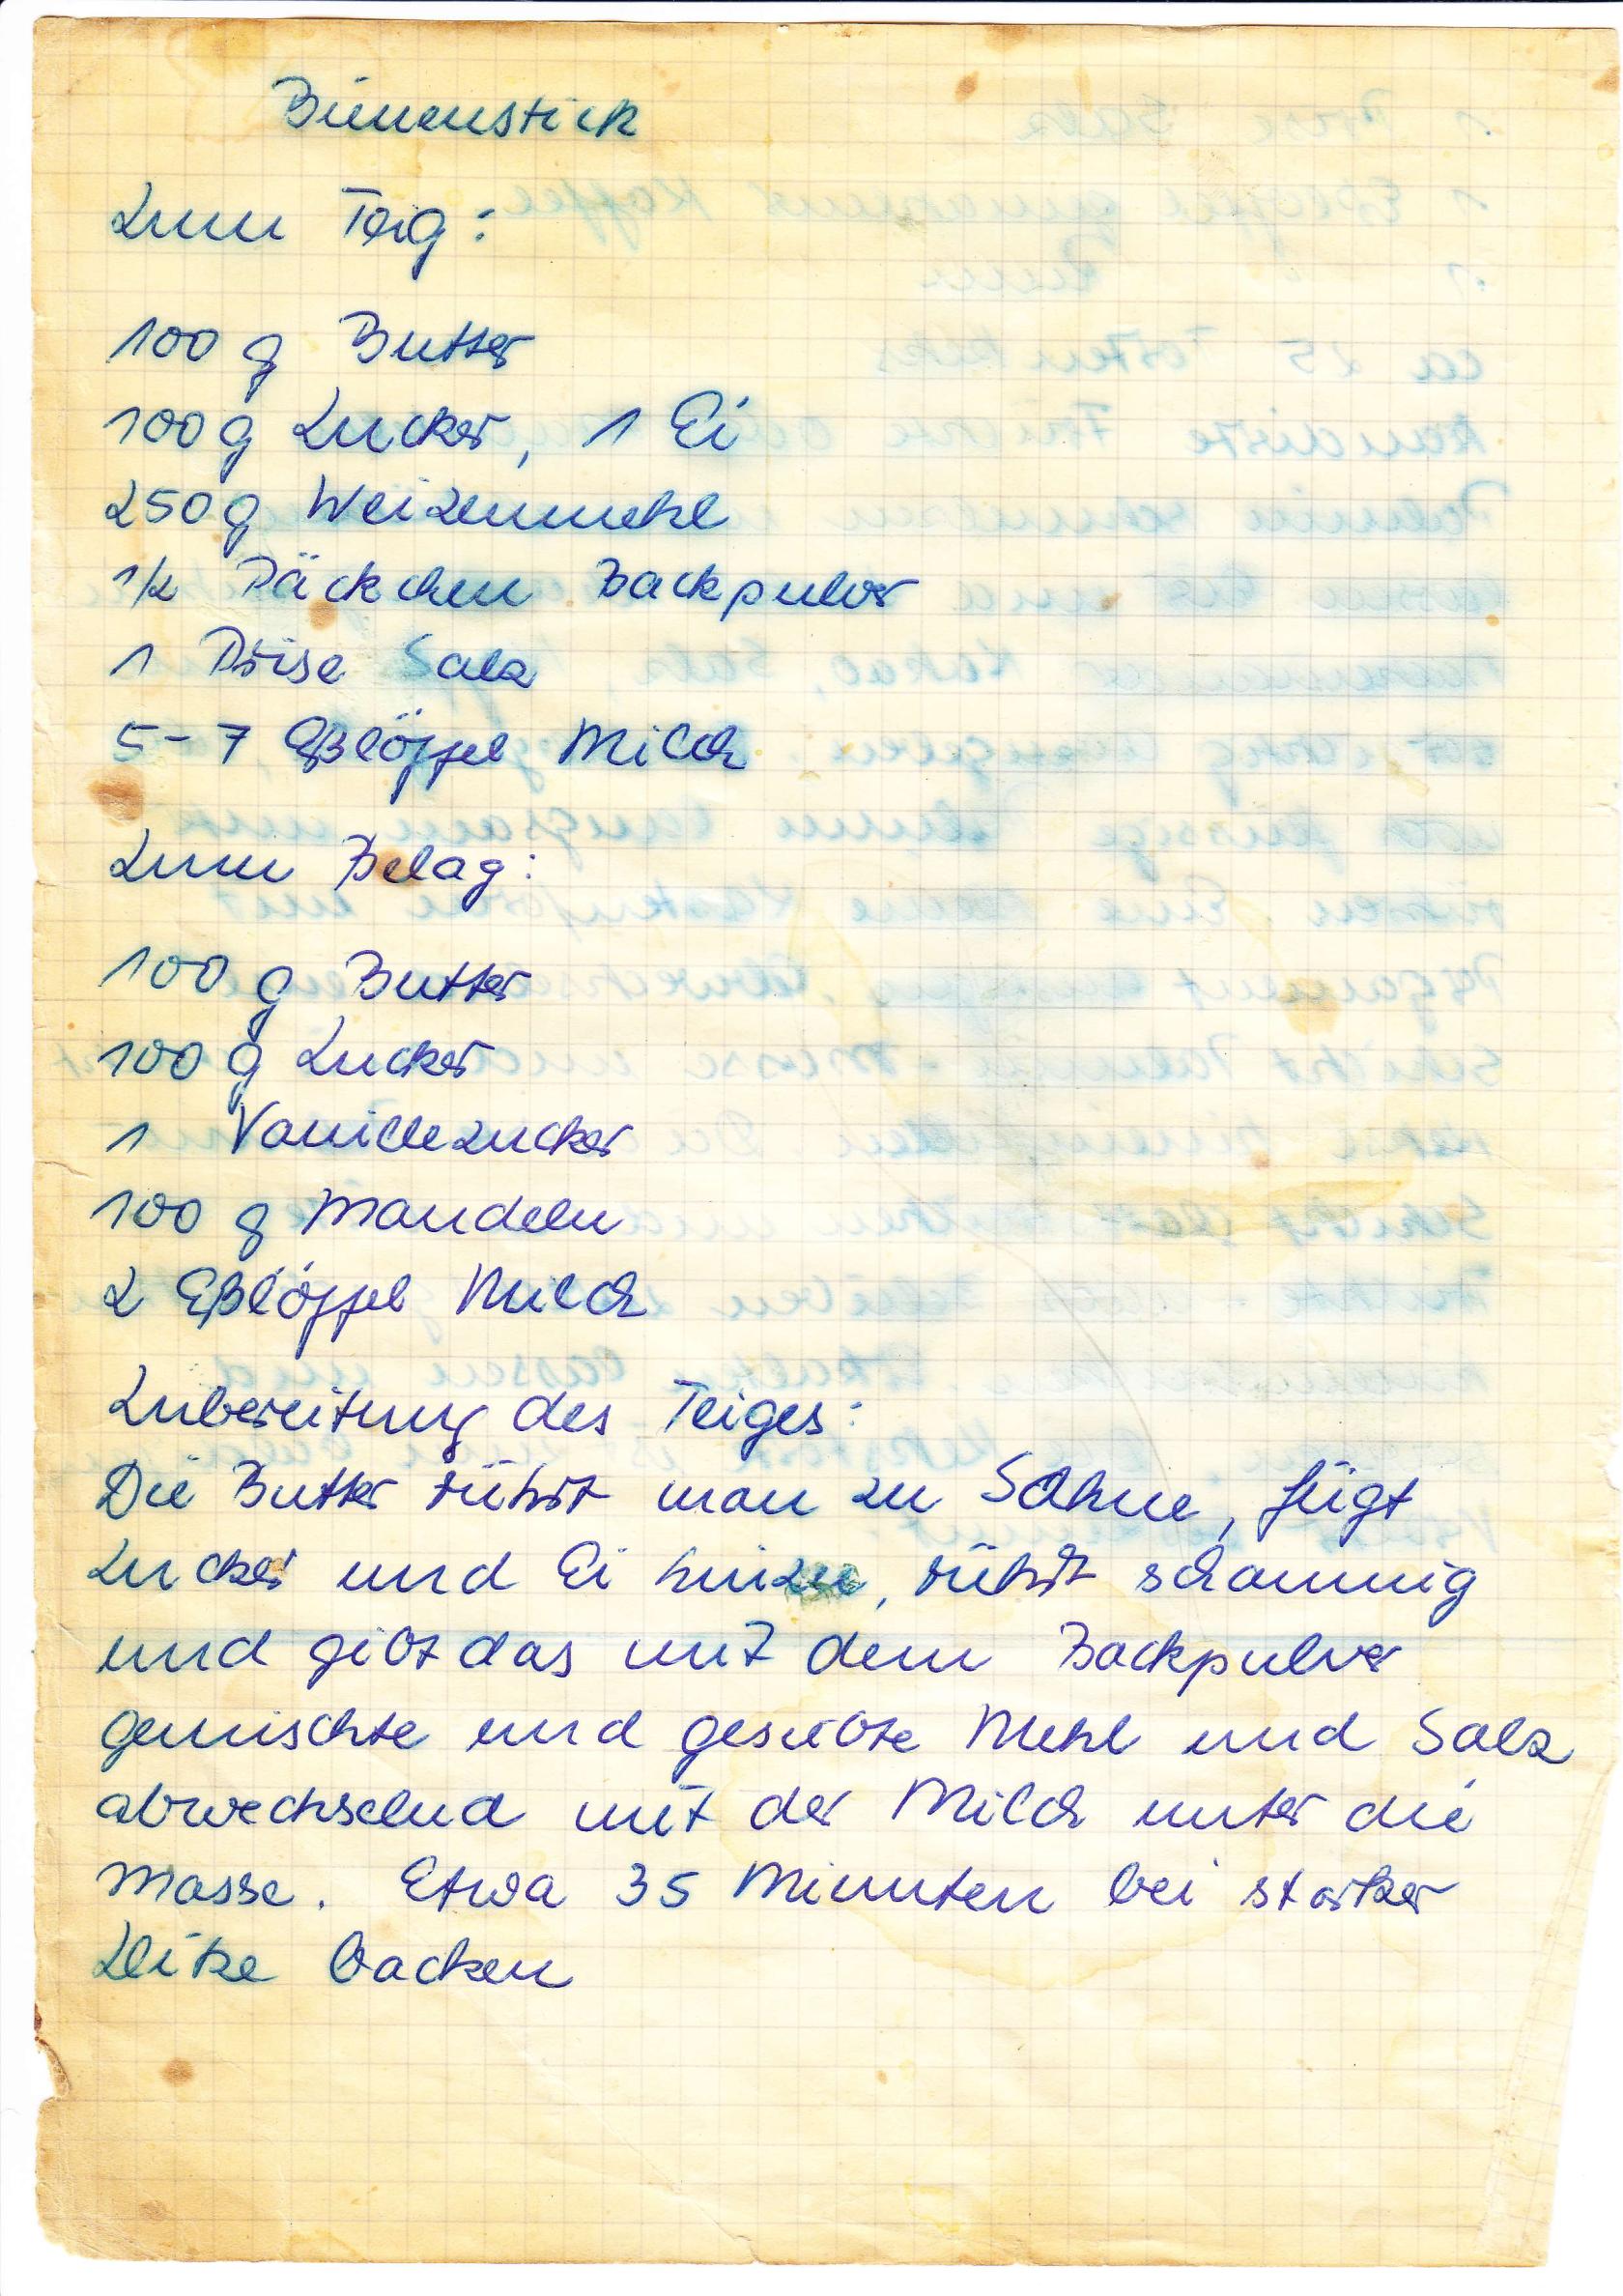 Bienenstich
Zum Teig:
100 g Butter
100 g Zucker, 1 Ei
250 g Weizenmehl
1/2 Päckchen Backpulver
1 Prise Salz
5-7 Eßlöffel Milch
Zum Belag:
100 g Butter
100 g Zucker
1 Vanillezucker
100 g Mandeln
2 Eßlöffel Milch
Zubereitung des Teiges:
Die Butter rührt man zu Sahne, fügt
Zucker und Ei hinzu, rührt schaumig
und gibt das mit dem Backpulver
gemischte und gesiebte Mehl und Salz
abwechselnd mit der Milch unter die
Masse. Etwa 35 Minuten bei starker
Hitze backen